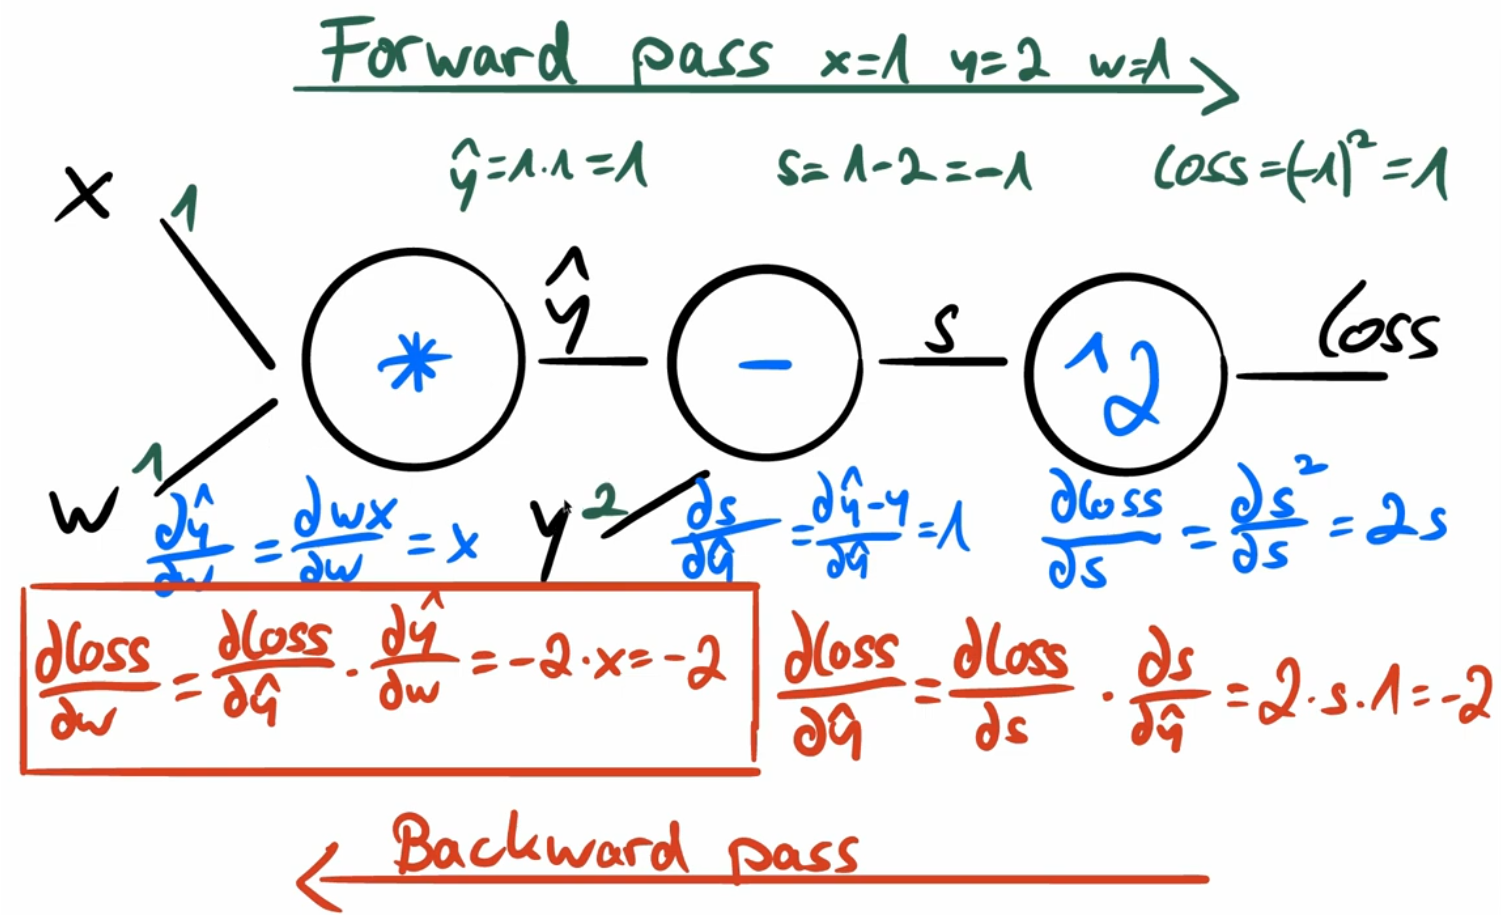 Forward pass x=1 y=2 w=1
ŷ=1·1=1
s=1-2=-1
loss=(-1)²=1
x 1
*
ŷ
-
s
^2
loss
w 1
y 2
∂ŷ/∂w = ∂wx/∂w = x
∂s/∂ŷ = ∂ŷ-y/∂ŷ = 1
∂loss/∂s = ∂s²/∂s = 2s
∂loss/∂w = ∂loss/∂ŷ · ∂ŷ/∂w = -2·x = -2
∂loss/∂ŷ = ∂loss/∂s · ∂s/∂ŷ = 2·s·1 = -2
Backward pass